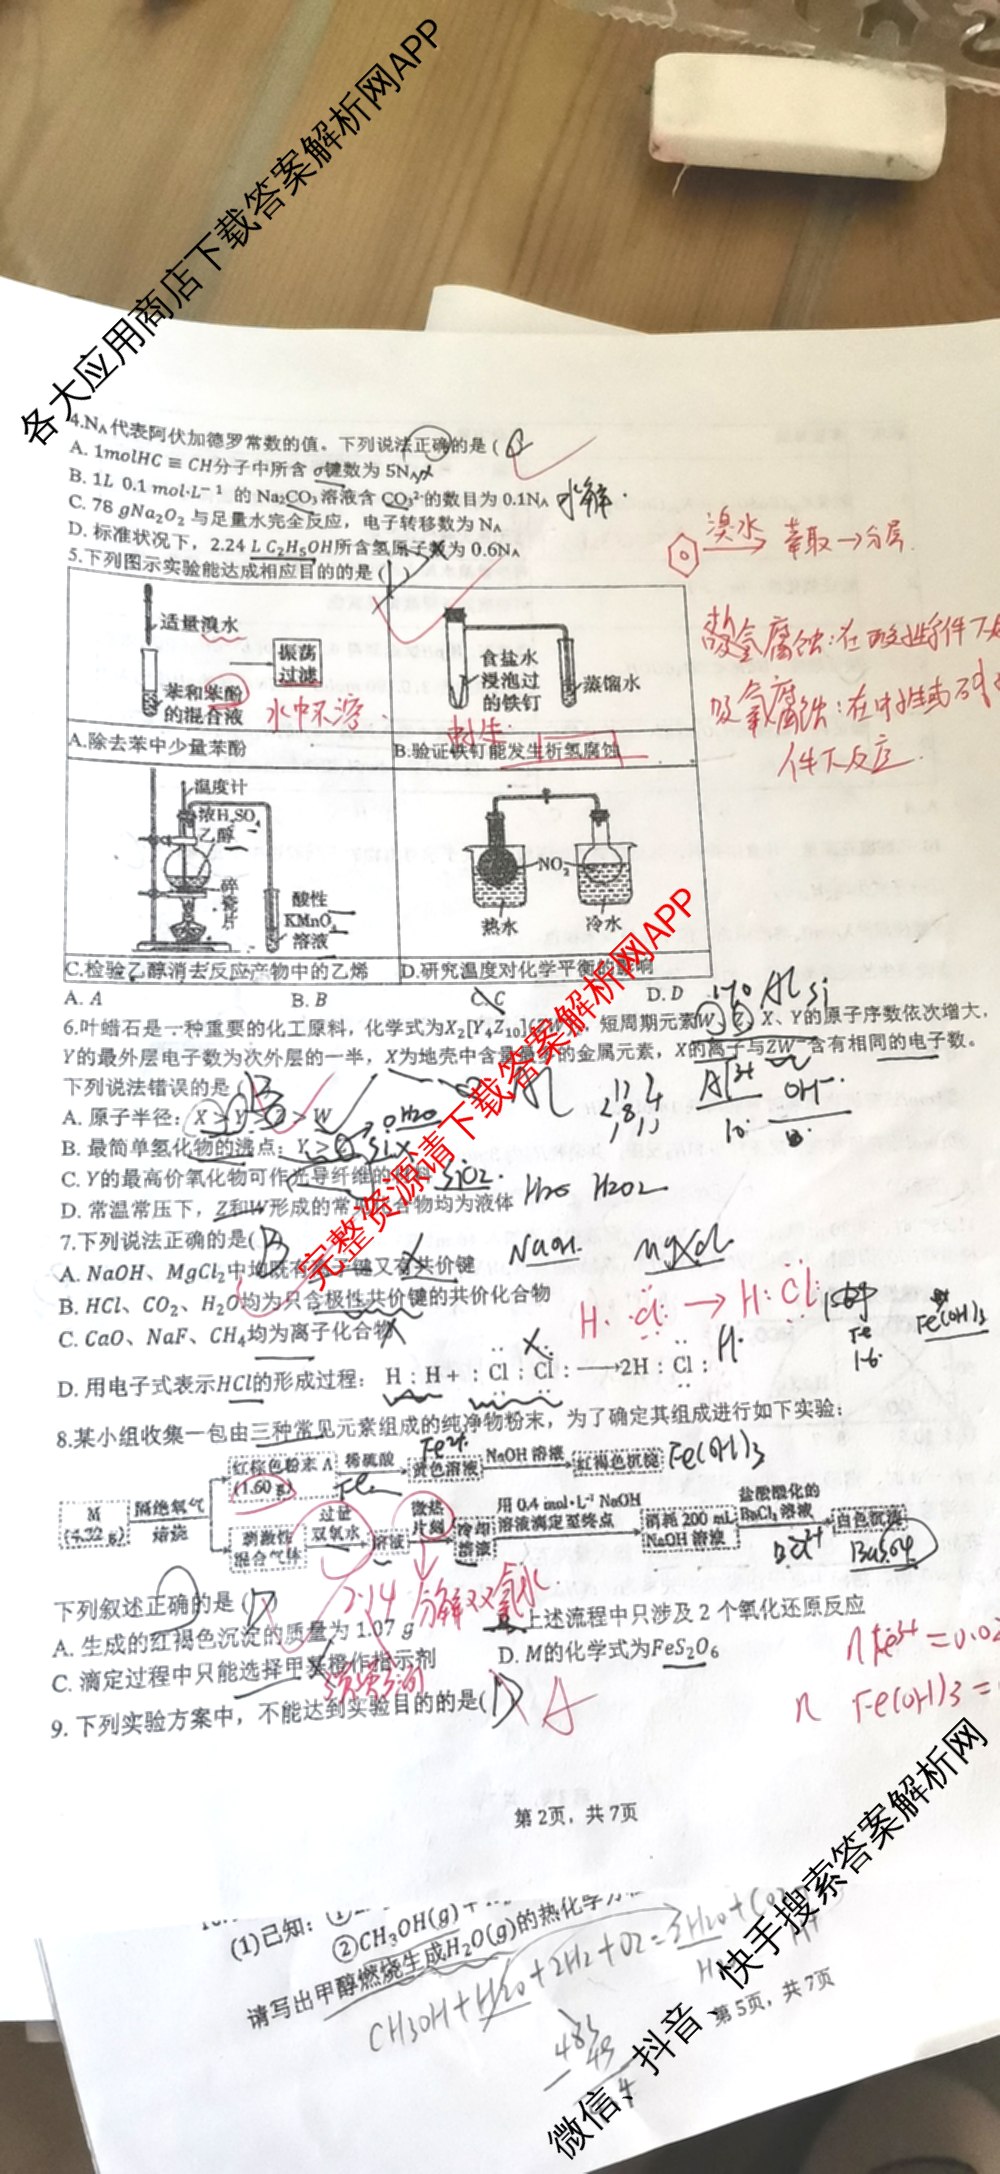 各大应用商店下载答案解析网APP
4.NA代表阿伏加德罗常数的值。下列说法正确的是 (
A. 1molHC ≡ CH分子中所含 σ键数为 5NA
B. 1L 0.1 mol·L⁻¹ 的 Na₂CO₃溶液含 CO₃²⁻的数目为 0.1NA 水解.
C. 78 gNa₂O₂ 与足量水完全反应，电子转移数为 NA
D. 标准状况下，2.24 L C₂H₅OH所含氢原子数为 0.6NA
溴水 萃取→分层.
5.下列图示实验能达成相应目的的是 (
适量溴水
振荡
过滤
苯和苯酚
的混合液
水中不溶.
食盐水
浸泡过
的铁钉
蒸馏水
析氢腐蚀:在酸性条件下
吸氧腐蚀:在中性或
件下反应.
A.除去苯中少量苯酚
B.验证铁钉能发生析氢腐蚀
温度计
浓H₂SO₄
乙醇
碎瓷片
酸性
KMnO₄
溶液
NO₂
热水
冷水
C.检验乙醇消去反应产物中的乙烯
D.研究温度对化学平衡的影响
A. A B. B C. C D. D
完整资源请下载答案解析网APP
Al Si
6.叶蜡石是一种重要的化工原料，化学式为X₂[Y₄Z₁₀] ，短周期元素W、Z、X、Y的原子序数依次增大，
Y的最外层电子数为次外层的一半，X为地壳中含量最多的金属元素，X的离子与ZW⁻含有相同的电子数。
下列说法错误的是 ( B
Al
Al³⁺ OH⁻.
A. 原子半径：X > Y > Z > W
B. 最简单氢化物的沸点：Y > Z H₂O
C. Y的最高价氧化物可作光导纤维的材料 SiO₂.
D. 常温常压下，Z和W形成的常见化合物均为液体 H₂O H₂O₂
7.下列说法正确的是( B
NaOH. MgCl₂
A. NaOH、MgCl₂中均既有离子键又有共价键
B. HCl、CO₂、H₂O均为只含极性共价键的共价化合物
C. CaO、NaF、CH₄均为离子化合物
D. 用电子式表示HCl的形成过程： H : H + : Cl : Cl : ⟶2H : Cl :
Fe(OH)₃
8.某小组收集一包由三种常见元素组成的纯净物粉末，为了确定其组成进行如下实验：
M
(4.32 g)
隔绝氧气
焙烧
红棕色粉末 A
(1.60 g)
稀硫酸
黄色溶液
NaOH 溶液
红褐色沉淀
Fe(OH)₃
刺激性
混合气体
过量
双氧水
溶液
微热
片刻
冷却
溶液
用 0.4 mol·L⁻¹ NaOH
溶液滴定至终点
消耗 200 mL
NaOH 溶液
盐酸酸化的
BaCl₂ 溶液
白色沉淀
BaSO₄
2.14 分解双氧水
下列叙述正确的是 ( D
A. 生成的红褐色沉淀的质量为 1.07 g
B. 上述流程中只涉及 2 个氧化还原反应
C. 滴定过程中只能选择甲基橙作指示剂
D. M的化学式为FeS₂O₆
9. 下列实验方案中，不能达到实验目的的是( D A
n Fe(OH)₃ =
第 2页，共 7页
(1)已知：①
②CH₃OH(g) +
请写出甲醇燃烧生成H₂O(g)的热化学方
第 5页，共 7页
微信、抖音、快手搜索答案解析网